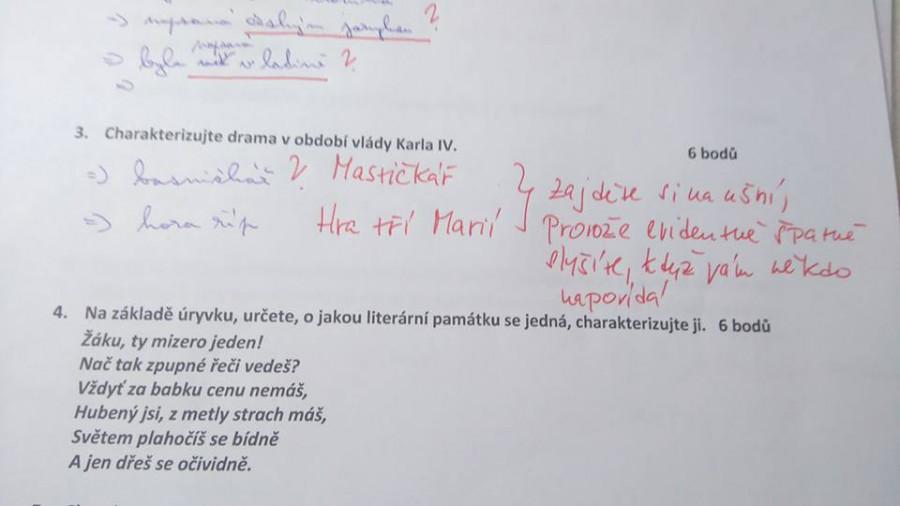 => napsaná českým jazykem ?
napsaná
=> byla v latině ?
=>
3. Charakterizujte drama v období vlády Karla IV. 6 bodů
=> basničkář ? Mastičkář
=> hora říp Hra tří Marií
Zajděte si na ušní,
Protože evidentně špatně
slyšíte, když vám někdo
napovídá!
4. Na základě úryvku, určete, o jakou literární památku se jedná, charakterizujte ji. 6 bodů
Žáku, ty mizero jeden!
Nač tak zpupné řeči vedeš?
Vždyť za babku cenu nemáš,
Hubený jsi, z metly strach máš,
Světem plahočíš se bídně
A jen dřeš se očividně.